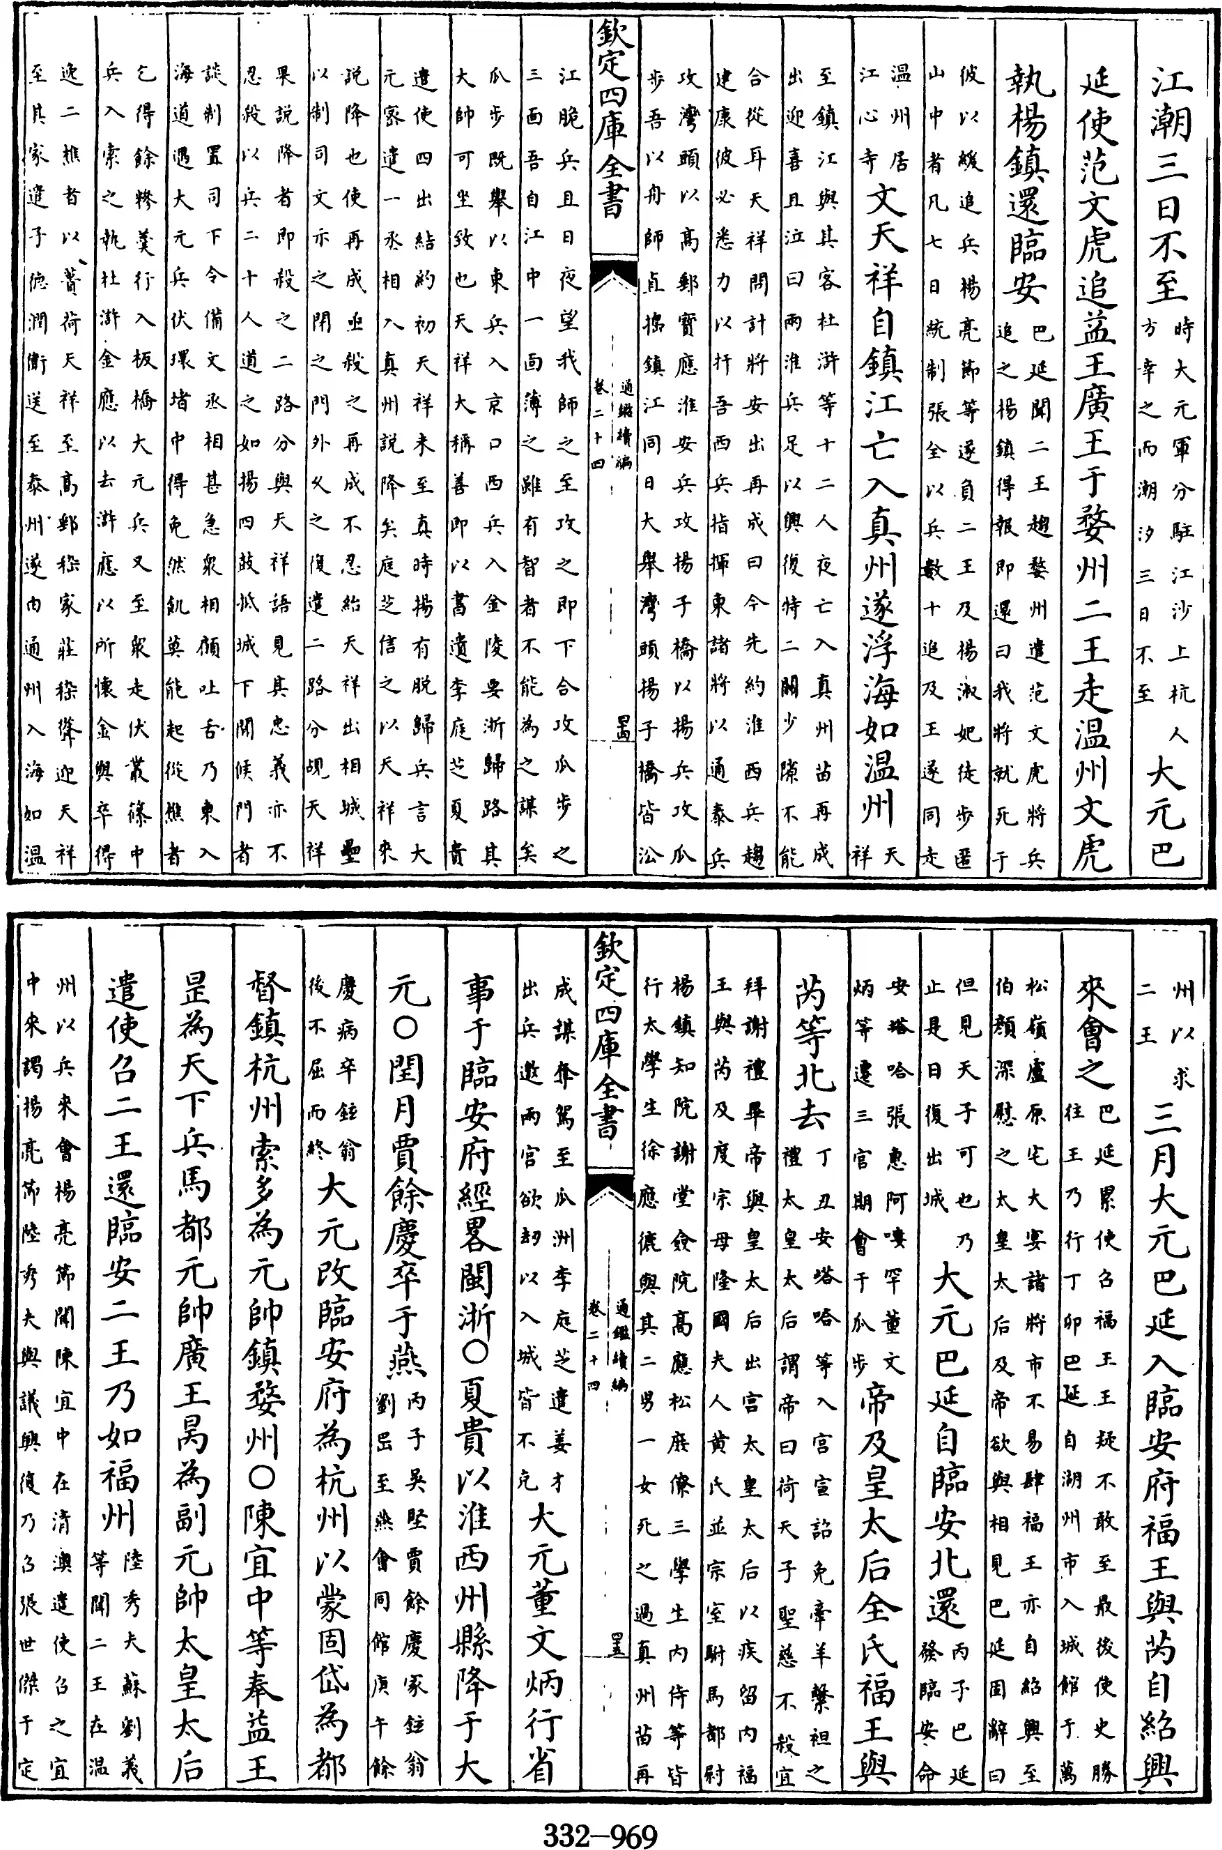 江潮三日不至時大元軍分駐江沙上杭人方幸之而潮汐三日不至大元巴
延使范文虎追益王廣王于婺州二王走温州文虎
執楊鎮還臨安巴延聞二王趨婺州遣范文虎將兵追之楊鎮得報即還曰我將就死于
彼以緩追兵楊亮節等遂負二王及楊淑妃徒步匿山中者凡七日統制張全以兵數十追及王遂同走
温州居江心寺文天祥自鎮江亡入真州遂浮海如温州天祥
至鎮江與其客杜滸等十二人夜亡入真州苗再成出迎喜且泣曰兩淮兵足以興復特二閫少隙不能
合從耳天祥問計將安出再成曰今先約淮西兵趨建康彼必悉力以扞吾西兵指揮東諸將以通泰兵
攻灣頭以高郵寶應淮安兵攻揚子橋以揚兵攻瓜步吾以舟師直搗鎮江同日大舉灣頭揚子橋皆㳂
欽定四庫全書
通鑑續編
卷二十四
江脆兵且日夜望我師之至攻之即下合攻瓜步之三面吾自江中一面薄之雖有智者不能為之謀矣
瓜步既舉以東兵入京口西兵入金陵要浙歸路其大帥可坐致也天祥大稱善即以書遺李庭芝夏貴
遣使四出結約初天祥未至真時揚有脱歸兵言大元宻遣一丞相入真州說降矣庭芝信之以天祥來
說降也使再成亟殺之再成不忍紿天祥出相城壘以制司文示之閉之門外久之復遣二路分覘天祥
果說降者即殺之二路分與天祥語見其忠義亦不忍殺以兵二十人道之如揚四鼓抵城下聞候門者
談制置司下令備文丞相甚急衆相顧吐舌乃東入海道遇大元兵伏環堵中得免然飢莫能起從樵者
乞得餘糝羹行入板橋大元兵又至衆走伏叢篠中兵入索之執杜滸金應以去滸應以所懷金與卒得
逸二樵者以蕢荷天祥至高郵嵇家莊嵇聳迎天祥至其家遣子德潤衛送至泰州遂由通州入海如温
州以求二王三月大元巴延入臨安府福王與芮自紹興
來會之巴延累使召福王王疑不敢至最後使史勝往王乃行丁卯巴延自湖州市入城館于萬
松嶺盧原宅大宴諸將市不易肆福王亦自紹興至伯顔深慰之太皇太后及帝欲與相見巴延固辭曰
但見天子可也乃止是日復出城大元巴延自臨安北還丙子巴延發臨安命
安塔哈張惠阿嘍罕董文炳等遷三官期會于瓜步帝及皇太后全氏福王與
芮等北去丁丑安塔哈等入宫宣詔免牽羊繫袒之禮太皇太后謂帝曰荷天子聖慈不殺宜
拜謝禮畢帝與皇太后出宫太皇太后以疾留内福王與芮及度宗母隆國夫人黄氏並宗室駙馬都尉
楊鎮知院謝堂僉院高應松庶僚三學生内侍等皆行太學生徐應鑣與其二男一女死之過真州苗再
欽定四庫全書
通鑑續編
卷二十四
成謀奪駕至瓜洲李庭芝遣姜才出兵邀兩宫欲刼以入城皆不克大元董文炳行省
事于臨安府經畧閩浙○夏貴以淮西州縣降于大
元○閏月賈餘慶卒于燕丙子吳堅賈餘慶家鉉翁劉岊至燕會同館庚午餘
慶病卒鉉翁後不屈而終大元改臨安府為杭州以蒙固岱為都
督鎮杭州索多為元帥鎮婺州○陳宜中等奉益王
昰為天下兵馬都元帥廣王昺為副元帥太皇太后
遣使召二王還臨安二王乃如福州陸秀夫蘇劉義等聞二王在温
州以兵來會楊亮節聞陳宜中在清澳遣使召之宜中來謁楊亮節陸秀夫與議興復乃召張世傑于定
332-969